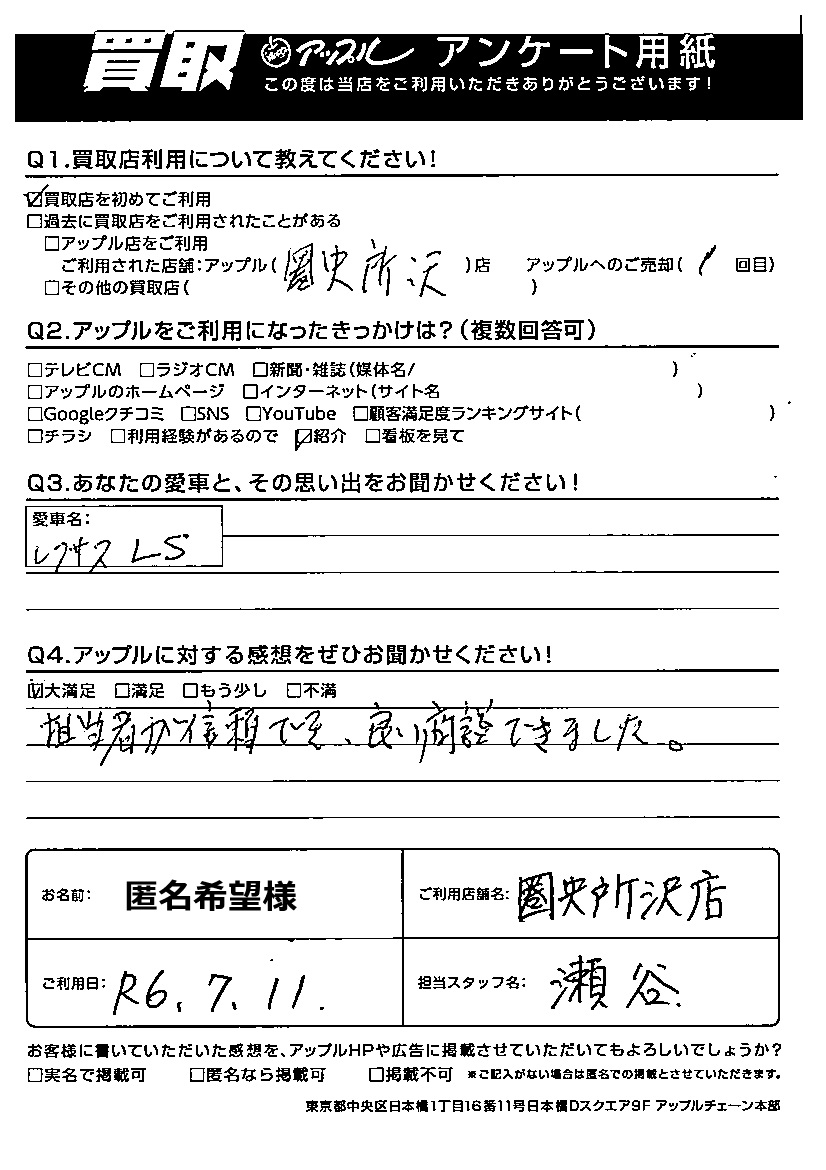 買取 アップル アンケート用紙
この度は当店をご利用いただきありがとうございます!
Q1.買取店利用について教えてください!
☑買取店を初めてご利用
□過去に買取店をご利用されたことがある
□アップル店をご利用
ご利用された店舗:アップル(圏央所沢)店 アップルへのご売却(1 回目)
□その他の買取店( )
Q2.アップルをご利用になったきっかけは?(複数回答可)
□テレビCM □ラジオCM □新聞・雑誌(媒体名/ )
□アップルのホームページ □インターネット(サイト名 )
□Googleクチコミ □SNS □YouTube □顧客満足度ランキングサイト( )
□チラシ □利用経験があるので ☑紹介 □看板を見て
Q3.あなたの愛車と、その思い出をお聞かせください!
愛車名:
レクサス LS
Q4.アップルに対する感想をぜひお聞かせください!
☑大満足 □満足 □もう少し □不満
担当者が信頼でき、良い商談できました。
お名前: 匿名希望様 ご利用店舗名: 圏央所沢店
ご利用日: R6.7.11. 担当スタッフ名: 瀬谷
お客様に書いていただいた感想を、アップルHPや広告に掲載させていただいてもよろしいでしょうか?
□実名で掲載可 □匿名なら掲載可 □掲載不可 ※ご記入がない場合は匿名での掲載とさせていただきます。
東京都中央区日本橋1丁目16番11号日本橋Dスクエア9F アップルチェーン本部